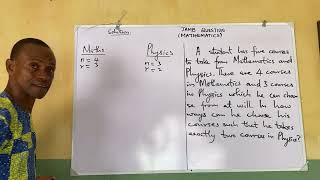 Solution
Maths
n = 4
r = 3
Physics
n = 3
r = 2
JAMB QUESTION
(MATHEMATICS)
A student has five courses
to take from Mathematics and
Physics. There are 4 courses
in Mathematics and 3 courses
in Physics which he can choose
from at will. In how
ways can he choose his
courses such that he takes
exactly two courses in Physics?